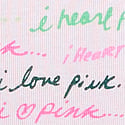 i heart p
k.... i Heart
i love pink.
i ♡ pink....